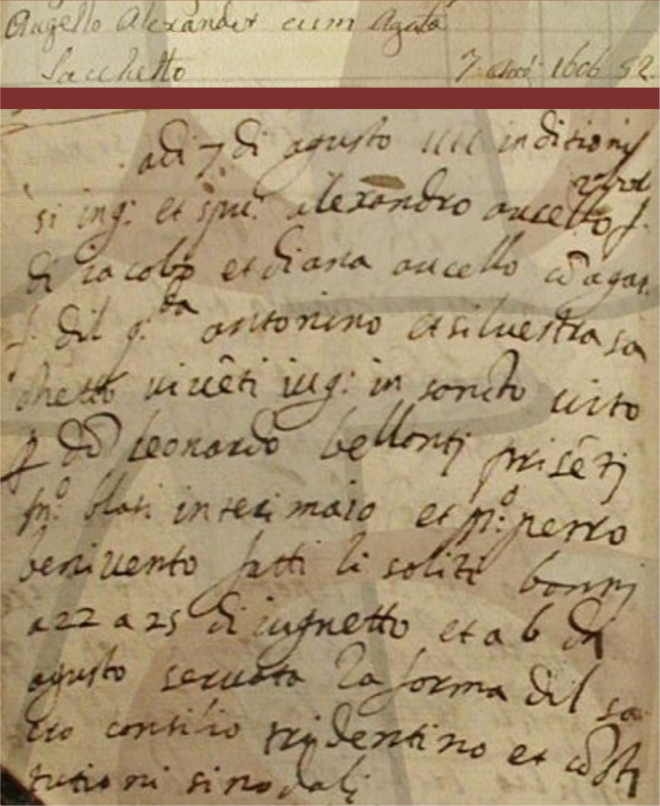 Augello Alexander cum Agata
Sacchetto 7 1606 52
adi 7 di agusto 1111 inditioni
si ing: et spu: alexandro aucello f.
di iacobo et diana aucello cō agat.
f. dil q. antonino et silvestra sa
chetto vivēti iug: in sancto vito
p dō leonardo bellonti prisēti
m.o blasi interimaio et m.o perro
benivento fatti li soliti banni
a 22 a 25 di iugnetto et a 6 di
agusto servata la forma dil sa
cro consilio tridentino et cōsti
tutioni sinodali